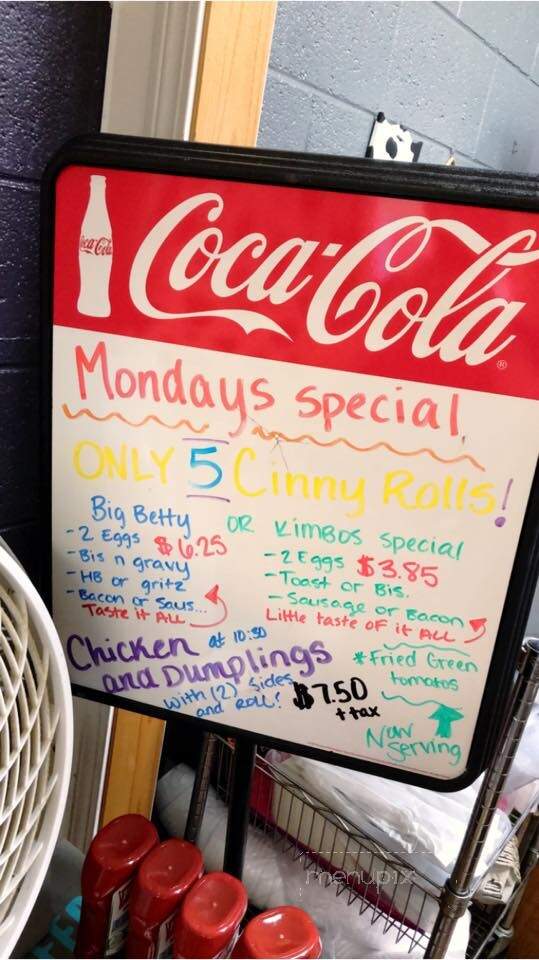 Coca-Cola
Coca-Cola®
Mondays special
ONLY 5 Cinny Rolls!
Big Betty
- 2 Eggs $6.25
- Bis n gravy
- HB or gritz
- Bacon or Saus...
Taste it ALL
OR Kimbos special
- 2 Eggs $3.85
- Toast or Bis.
- Sausage or Bacon
Little taste of it ALL
Chicken at 10:30
and Dumplings
with (2) sides
and Roll! $7.50
+ tax
*Fried Green
tomatos
Now
Serving
menupix